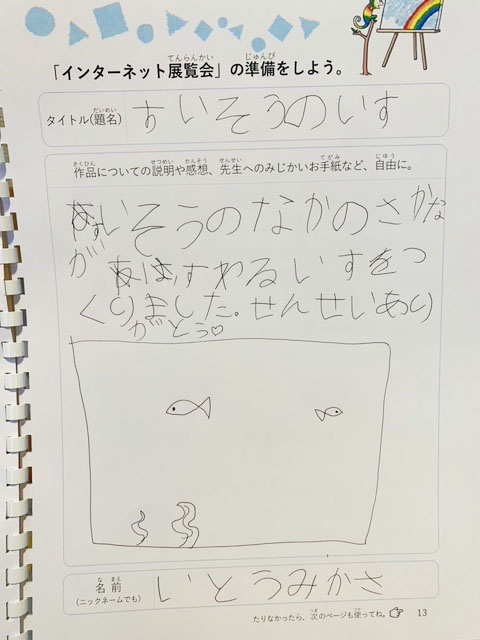 「インターネット展覧会」の準備をしよう。
タイトル(題名) すいそうのいす
作品についての説明や感想、先生へのみじかいお手紙など、自由に。
すいそうのなかのさかな
が すわるいすをつ
くりました。せんせいあり
がとう♡
名前
(ニックネームでも) いとうみかさ
たりなかったら、次のページも使ってね。 13